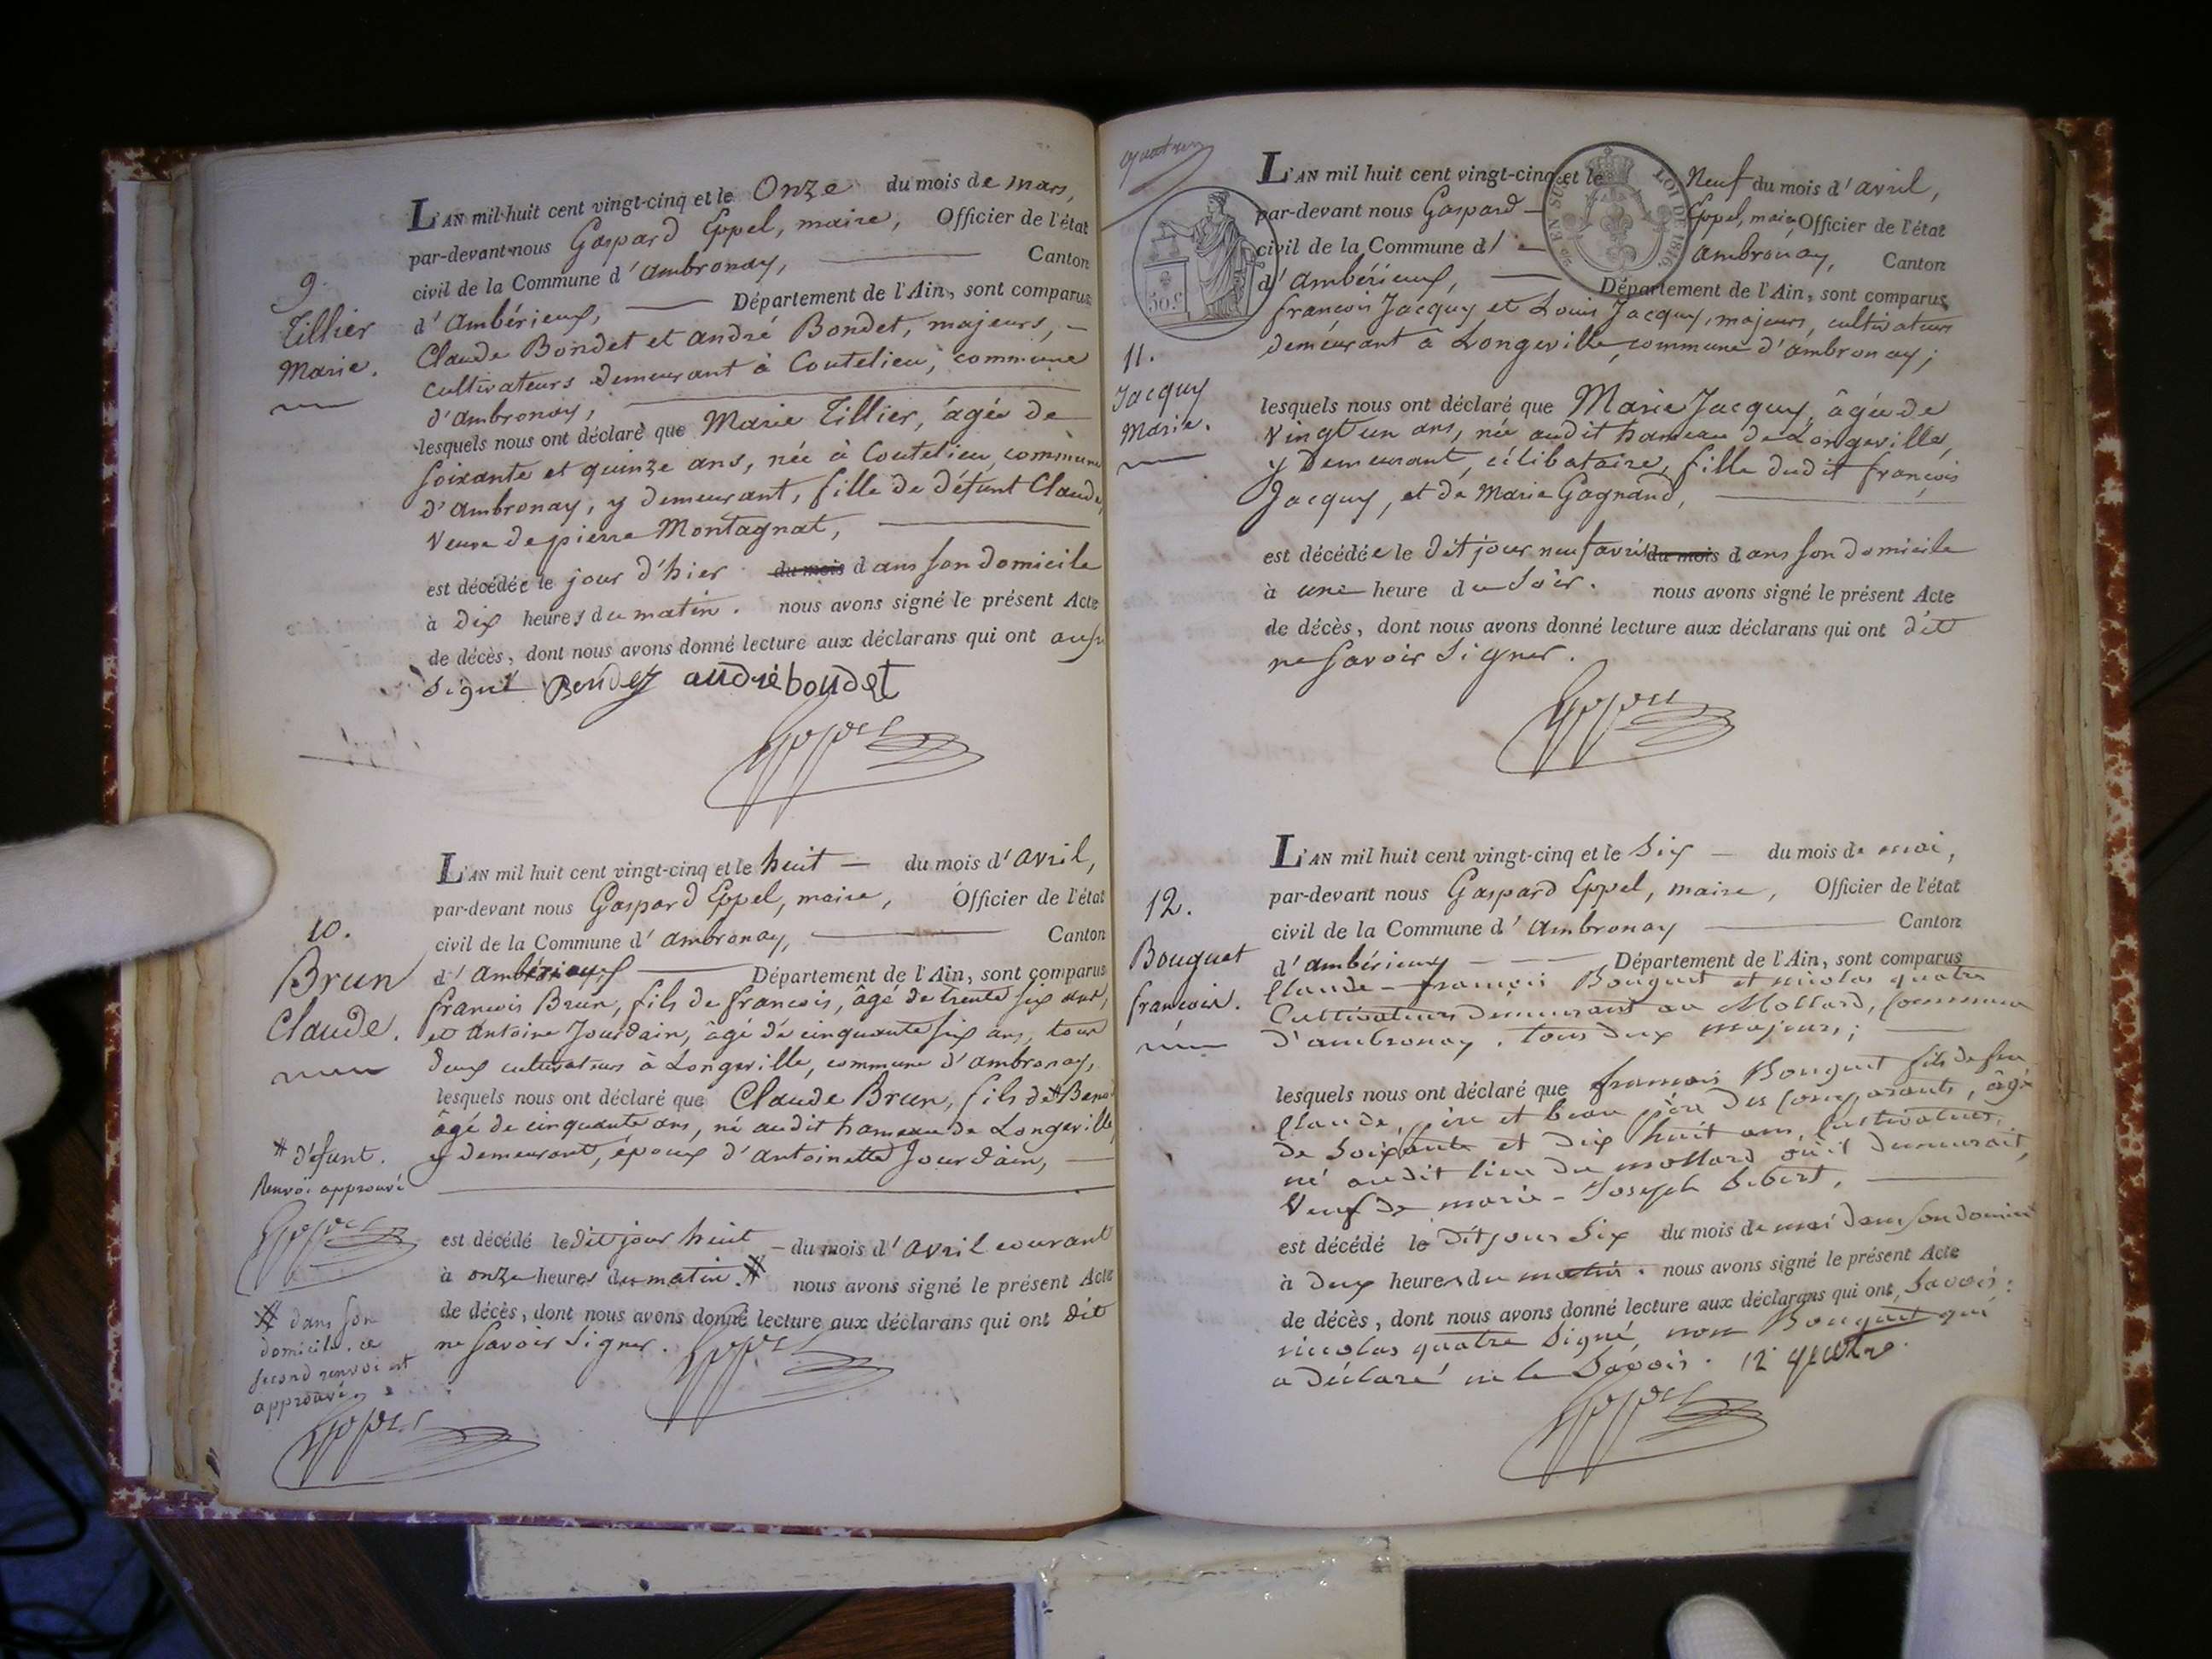 9.
Tillier
Marie.
L'AN mil huit cent vingt-cinq et le Onze du mois de mars,
par-devant nous Gaspard Eppel, maire, Officier de l'état
civil de la Commune d'ambronay, Canton
d'Ambérieux, Département de l'Ain, sont comparus
Claude Bondet et andré Bondet, majeurs,
cultivateurs demeurant à Coutelieu, commune
d'ambronay,
lesquels nous ont déclaré que Marie Tillier, âgée de
soixante et quinze ans, née à Coutelieu commune
d'ambronay, y demeurant, fille de défunt Claude,
veuve de pierre Montagnat,
est décédée le jour d'hier du mois dans son domicile
à dix heures du matin. nous avons signé le présent Acte
de décès, dont nous avons donné lecture aux déclarans qui ont
signé Bondet andré boudet
Eppel
10.
Brun
Claude.
# défunt.
Renvoi approuvé
Eppel
# dans son
domicile. ce
second renvoi est
approuvé
Eppel
L'AN mil huit cent vingt-cinq et le huit du mois d'avril,
par-devant nous Gaspard Eppel, maire, Officier de l'état
civil de la Commune d'ambronay, Canton
d'ambérieux Département de l'Ain, sont comparus
francois Brun, fils de francois, âgé de trente six ans,
et Antoine Jourdain, âgé de cinquante six ans, tous
deux cultivateurs à Longeville, commune d'ambronay,
lesquels nous ont déclaré que Claude Brun, fils de #
âgé de cinquante ans, né audit hameau de Longeville
y demeurant, époux d'antoinette Jourdain,
est décédé le dit jour huit du mois d'avril courant
à onze heures du matin. # nous avons signé le présent Acte
de décès, dont nous avons donné lecture aux déclarans qui ont dit
ne savoir signer.
Eppel
11.
Jacquy
Marie.
50 c.
EN SUS
LOI DE 1816.
L'AN mil huit cent vingt-cinq et le Neuf du mois d'avril,
par-devant nous Gaspard Eppel, maire Officier de l'état
civil de la Commune d' ambronay, Canton
d'ambérieux, Département de l'Ain, sont comparus
francois Jacquy et Louis Jacquy, majeurs, cultivateurs
demeurant à Longeville, commune d'ambronay;
lesquels nous ont déclaré que Marie Jacquy, âgée de
vingt un ans, née audit hameau de Longeville,
y demeurant, célibataire, fille dudit françois
Jacquy, et de Marie Gagnand,
est décédée le dit jour neuf avril du mois dans son domicile
à une heure du soir. nous avons signé le présent Acte
de décès, dont nous avons donné lecture aux déclarans qui ont dit
ne savoir signer.
Eppel
12.
Bouquet
francois.
L'AN mil huit cent vingt-cinq et le six du mois de mai,
par-devant nous Gaspard Eppel, maire, Officier de l'état
civil de la Commune d'ambronay Canton
d'ambérieux Département de l'Ain, sont comparus
Claude-francois Bouquet et nicolas quatre
Cultivateurs demeurant au Mollard, commune
d'ambronay, tous deux majeurs;
lesquels nous ont déclaré que francois Bouquet fils de feu
Claude, père et beau père des comparants, âgé
de soixante et dix huit ans, cultivateur,
né audit lieu du mollard où il demeurait,
veuf de marie-Joseph Sibert,
est décédé le dit jour six du mois de mai dans son domicile
à deux heures du matin. nous avons signé le présent Acte
de décès, dont nous avons donné lecture aux déclarans qui ont, savoir:
nicolas quatre signé, non Bouquet qui
a déclaré ne le savoir. quatre
Eppel